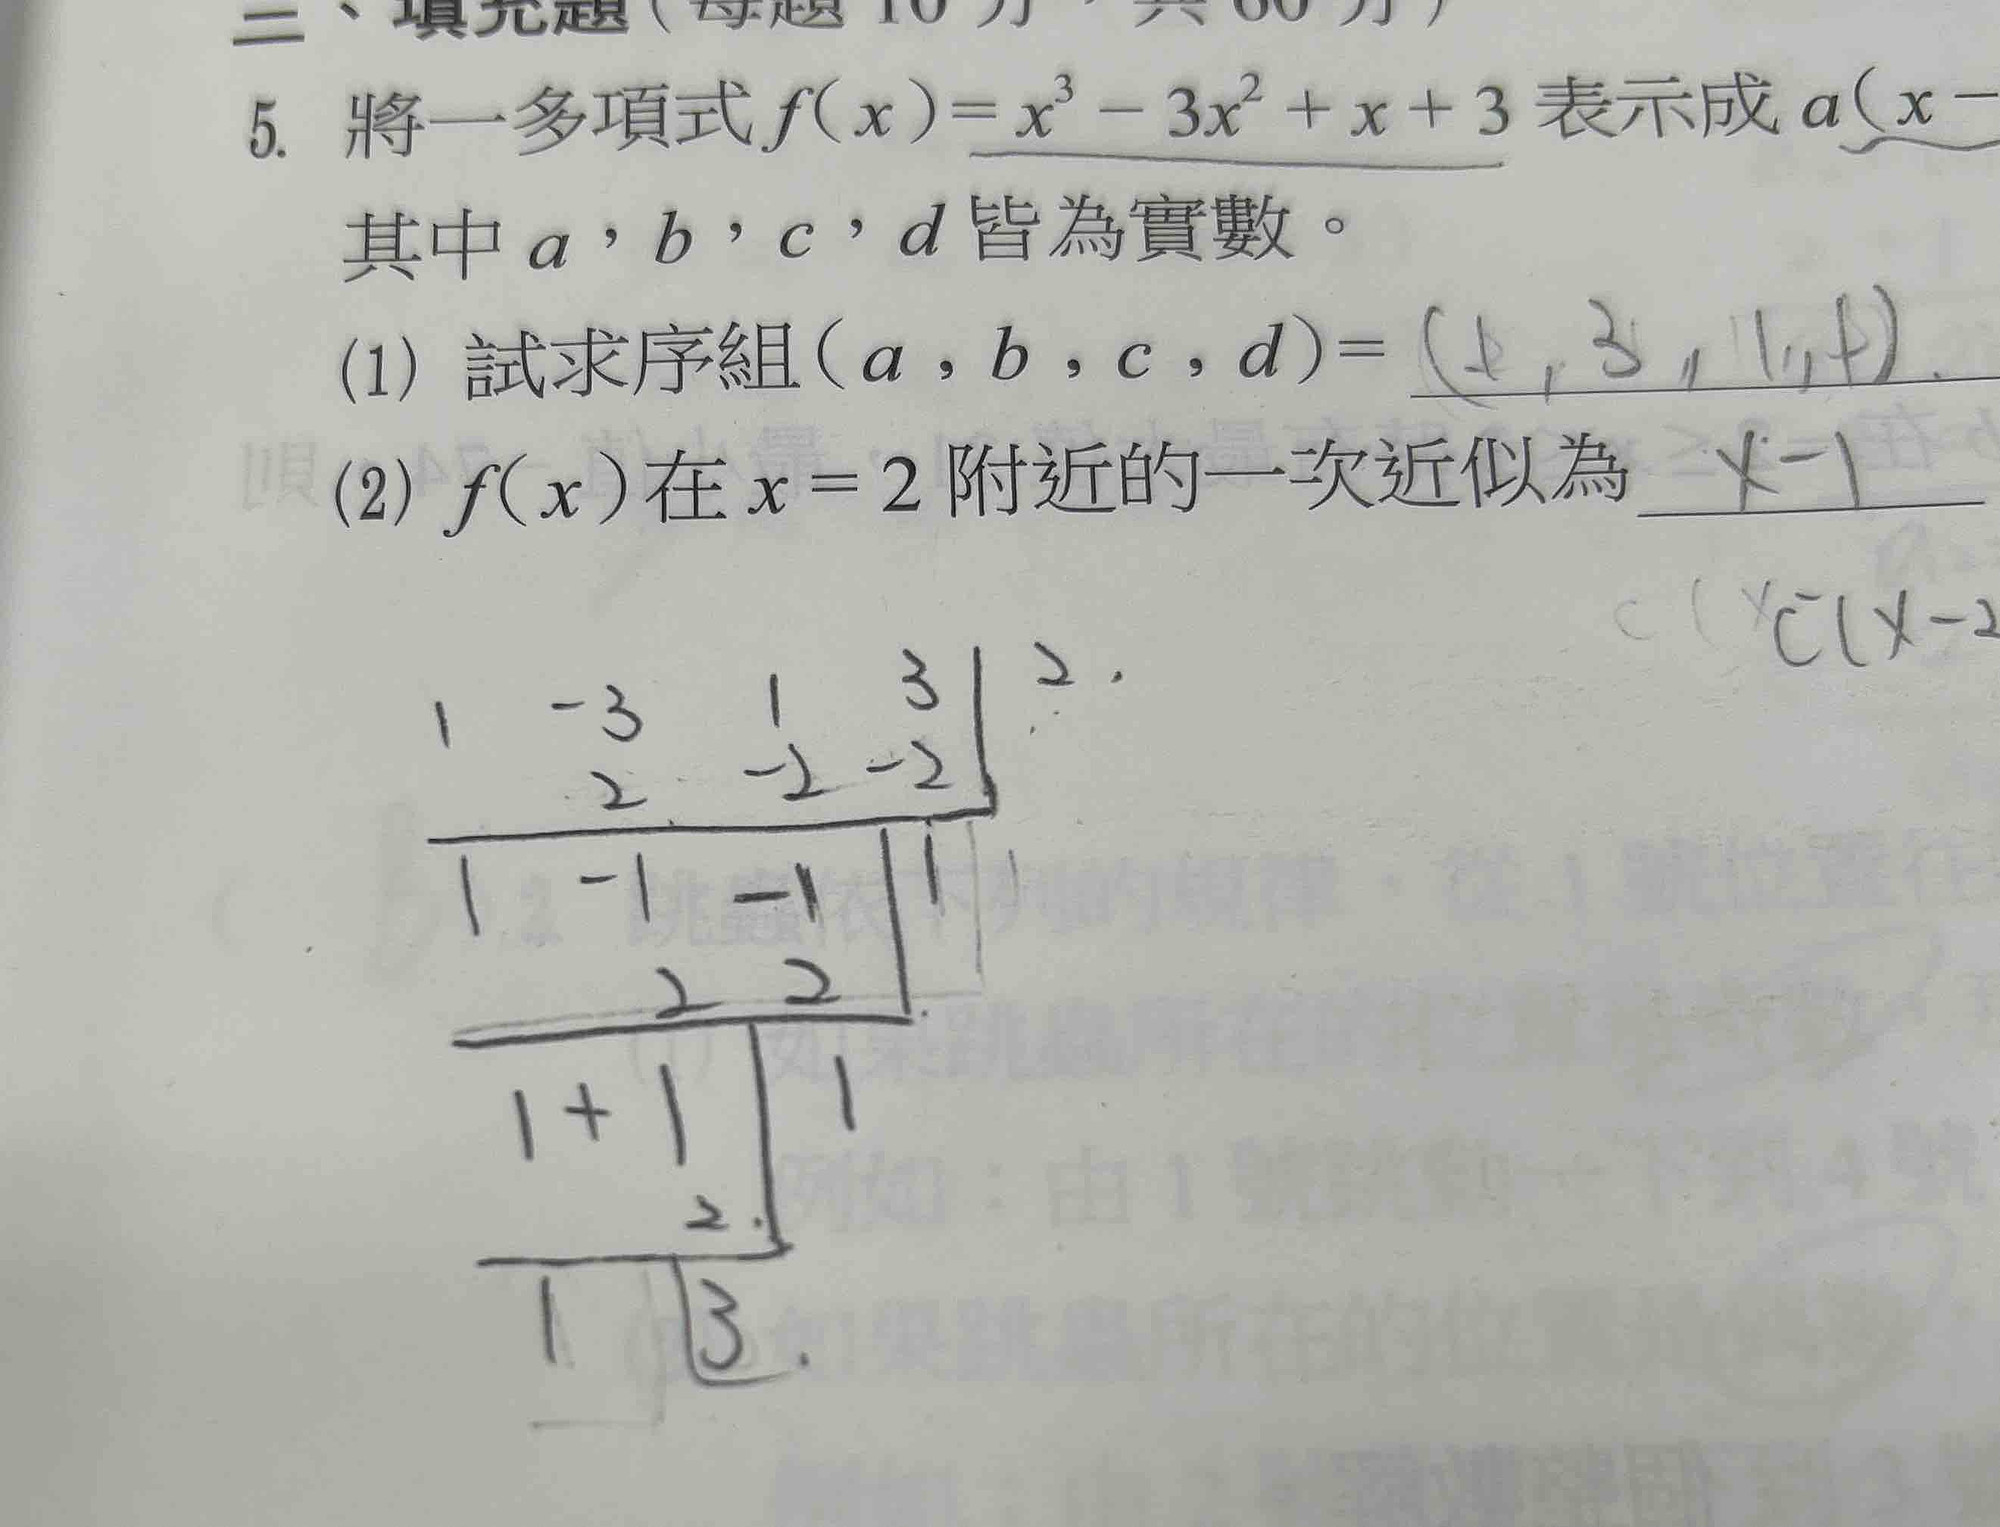 二、填充題(每題 10 分，共 60 分)
5. 將一多項式 f(x)=x³-3x²+x+3 表示成 a(x-
其中 a，b，c，d 皆為實數。
(1) 試求序組(a，b，c，d)= (1, 3, 1, 1).
(2) f(x)在 x=2 附近的一次近似為 x-1
C(x-2
1 -3 1 3 2.
2 -2 -2
1 -1 -1 1
2 2
1+1 1
2.
1 3.